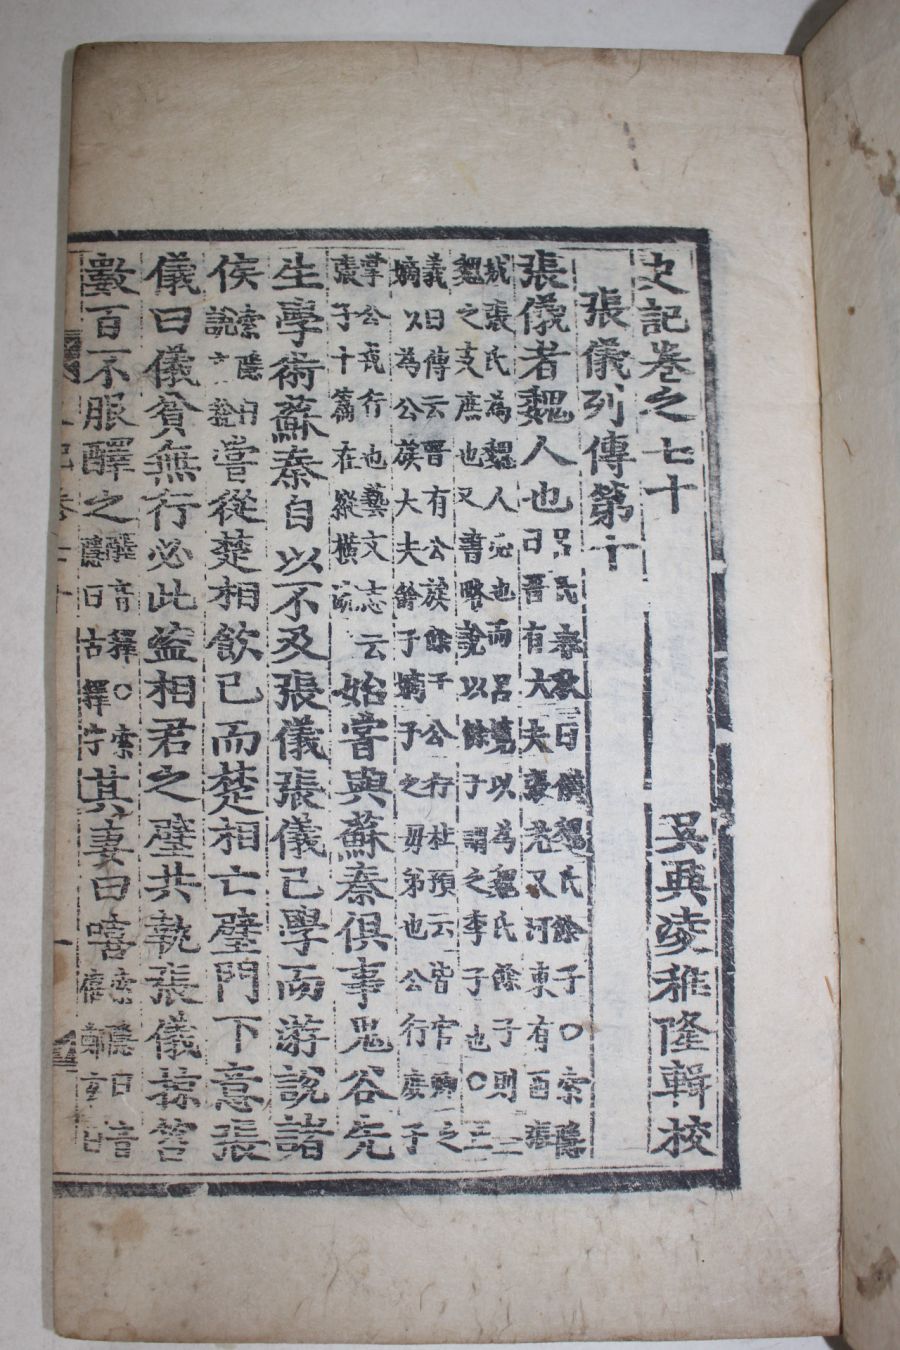 史記卷之七十 吳興凌稚隆輯校
張儀列傳第十
張儀者魏人也呂氏春秋曰儀魏氏餘子○索隱
曰晉有大夫張老又河東有西張
城張氏為魏人必也而呂覽以為魏氏餘子則
魏之支庶也又書略說以餘子謂之季子也○正
義曰傳云晉有公族餘子公行杜預云皆官卿之
嫡以為公族大夫餘子嫡子之母弟也公行庶子
掌公戎行也藝文志云
張子十篇在縱橫流始嘗與蘇秦俱事鬼谷先
生學術蘇秦自以不及張儀張儀已學而游說諸
侯索隱曰說音稅嘗從楚相飲已而楚相亡璧門下意張
儀曰儀貧無行必此盜相君之璧共執張儀掠笞
數百不服醳之醳音釋○索隱曰古釋字其妻曰嘻索隱曰音僖鄭玄曰